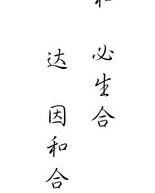 和 必生合
达 因和合